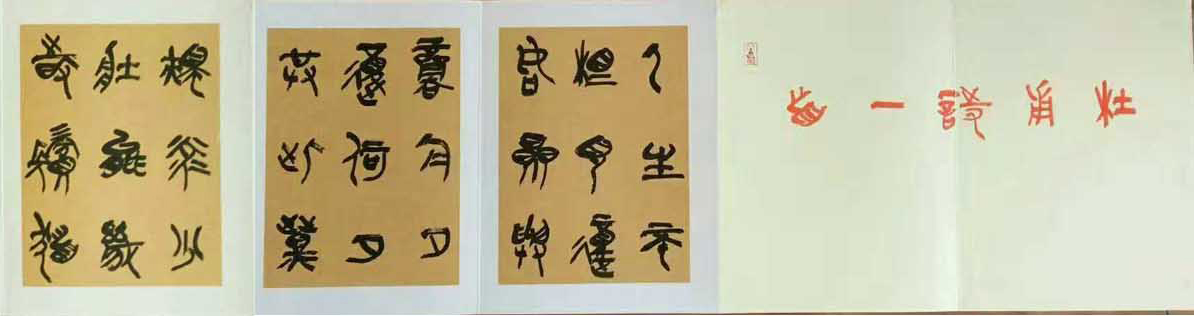 杜甫詩一首
人生不
相見動
如參與
商今夕
復何夕
共此燈
燭光少
壯能幾
時鬢髮